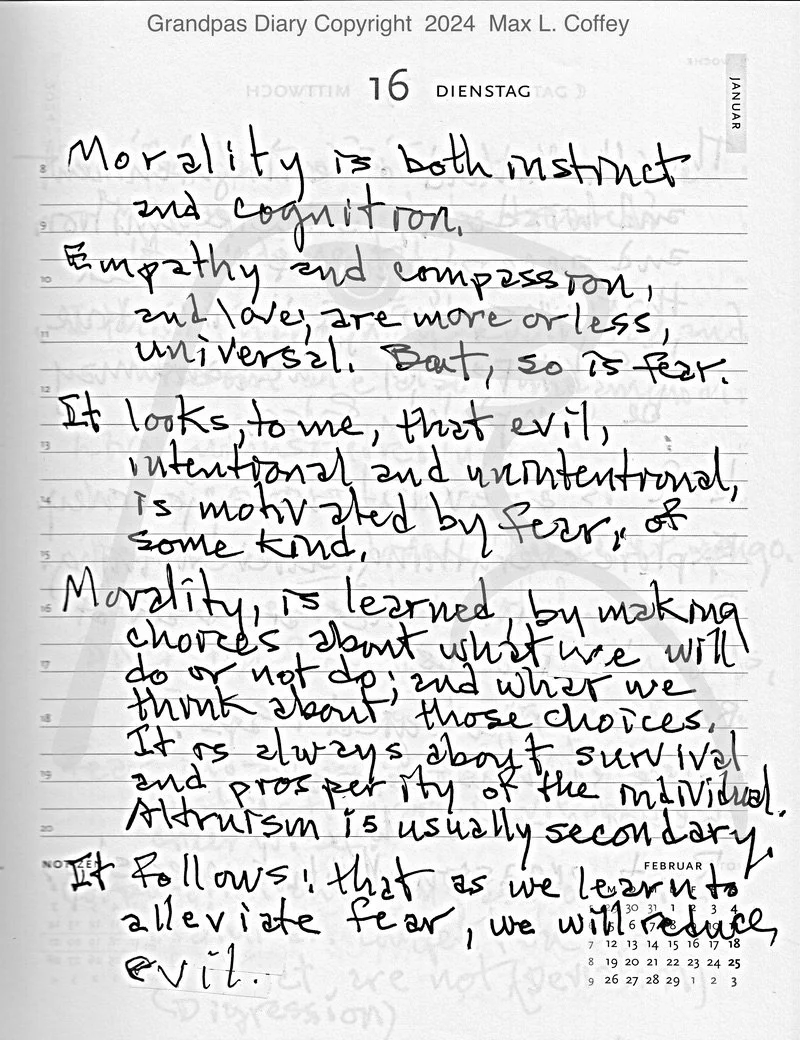 Grandpas Diary Copyright 2024 Max L. Coffey
16 DIENSTAG
JANUAR
Morality is both instinct
and cognition.
Empathy and compassion,
and love, are more or less,
universal. But, so is fear.
It looks, to me, that evil,
intentional and unintentional,
is motivated by fear, of
some kind.
Morality, is learned, by making
choices about what we will
do or not do; and what we
think about those choices.
It is always about survival
and prosperity of the individual.
Altruism is usually secondary.
It follows: that as we learn to
alleviate fear, we will reduce
evil.
8
9
10
11
12
13
14
15
16
17
18
19
20
NOTIZEN
FEBRUAR
30 31 1 2 3 4
7 12 13 14 15 16 17 18
8 19 20 21 22 23 24 25
9 26 27 28 29 1 2 3
(Digression)